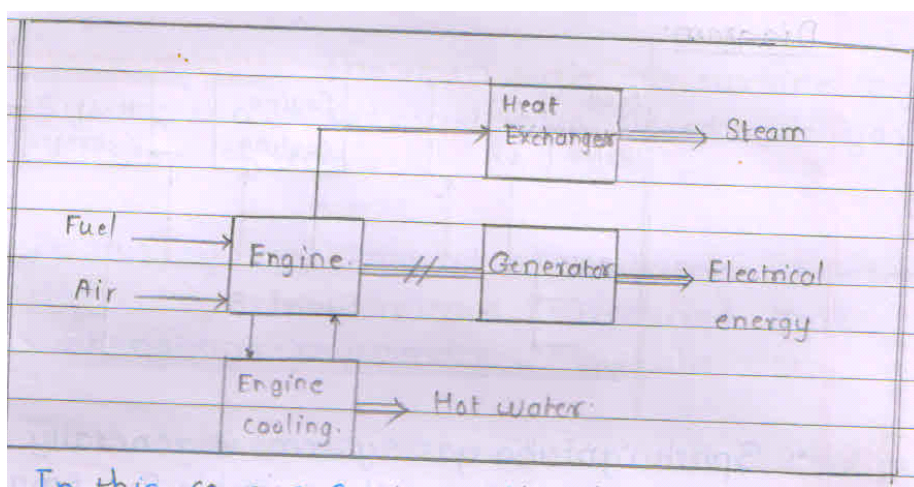 Heat
Exchanger
Steam
Fuel
Air
Engine
Generator
Electrical
energy
Engine
cooling.
Hot water.
In this